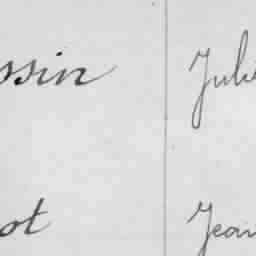 ssin Juli
ot Jean